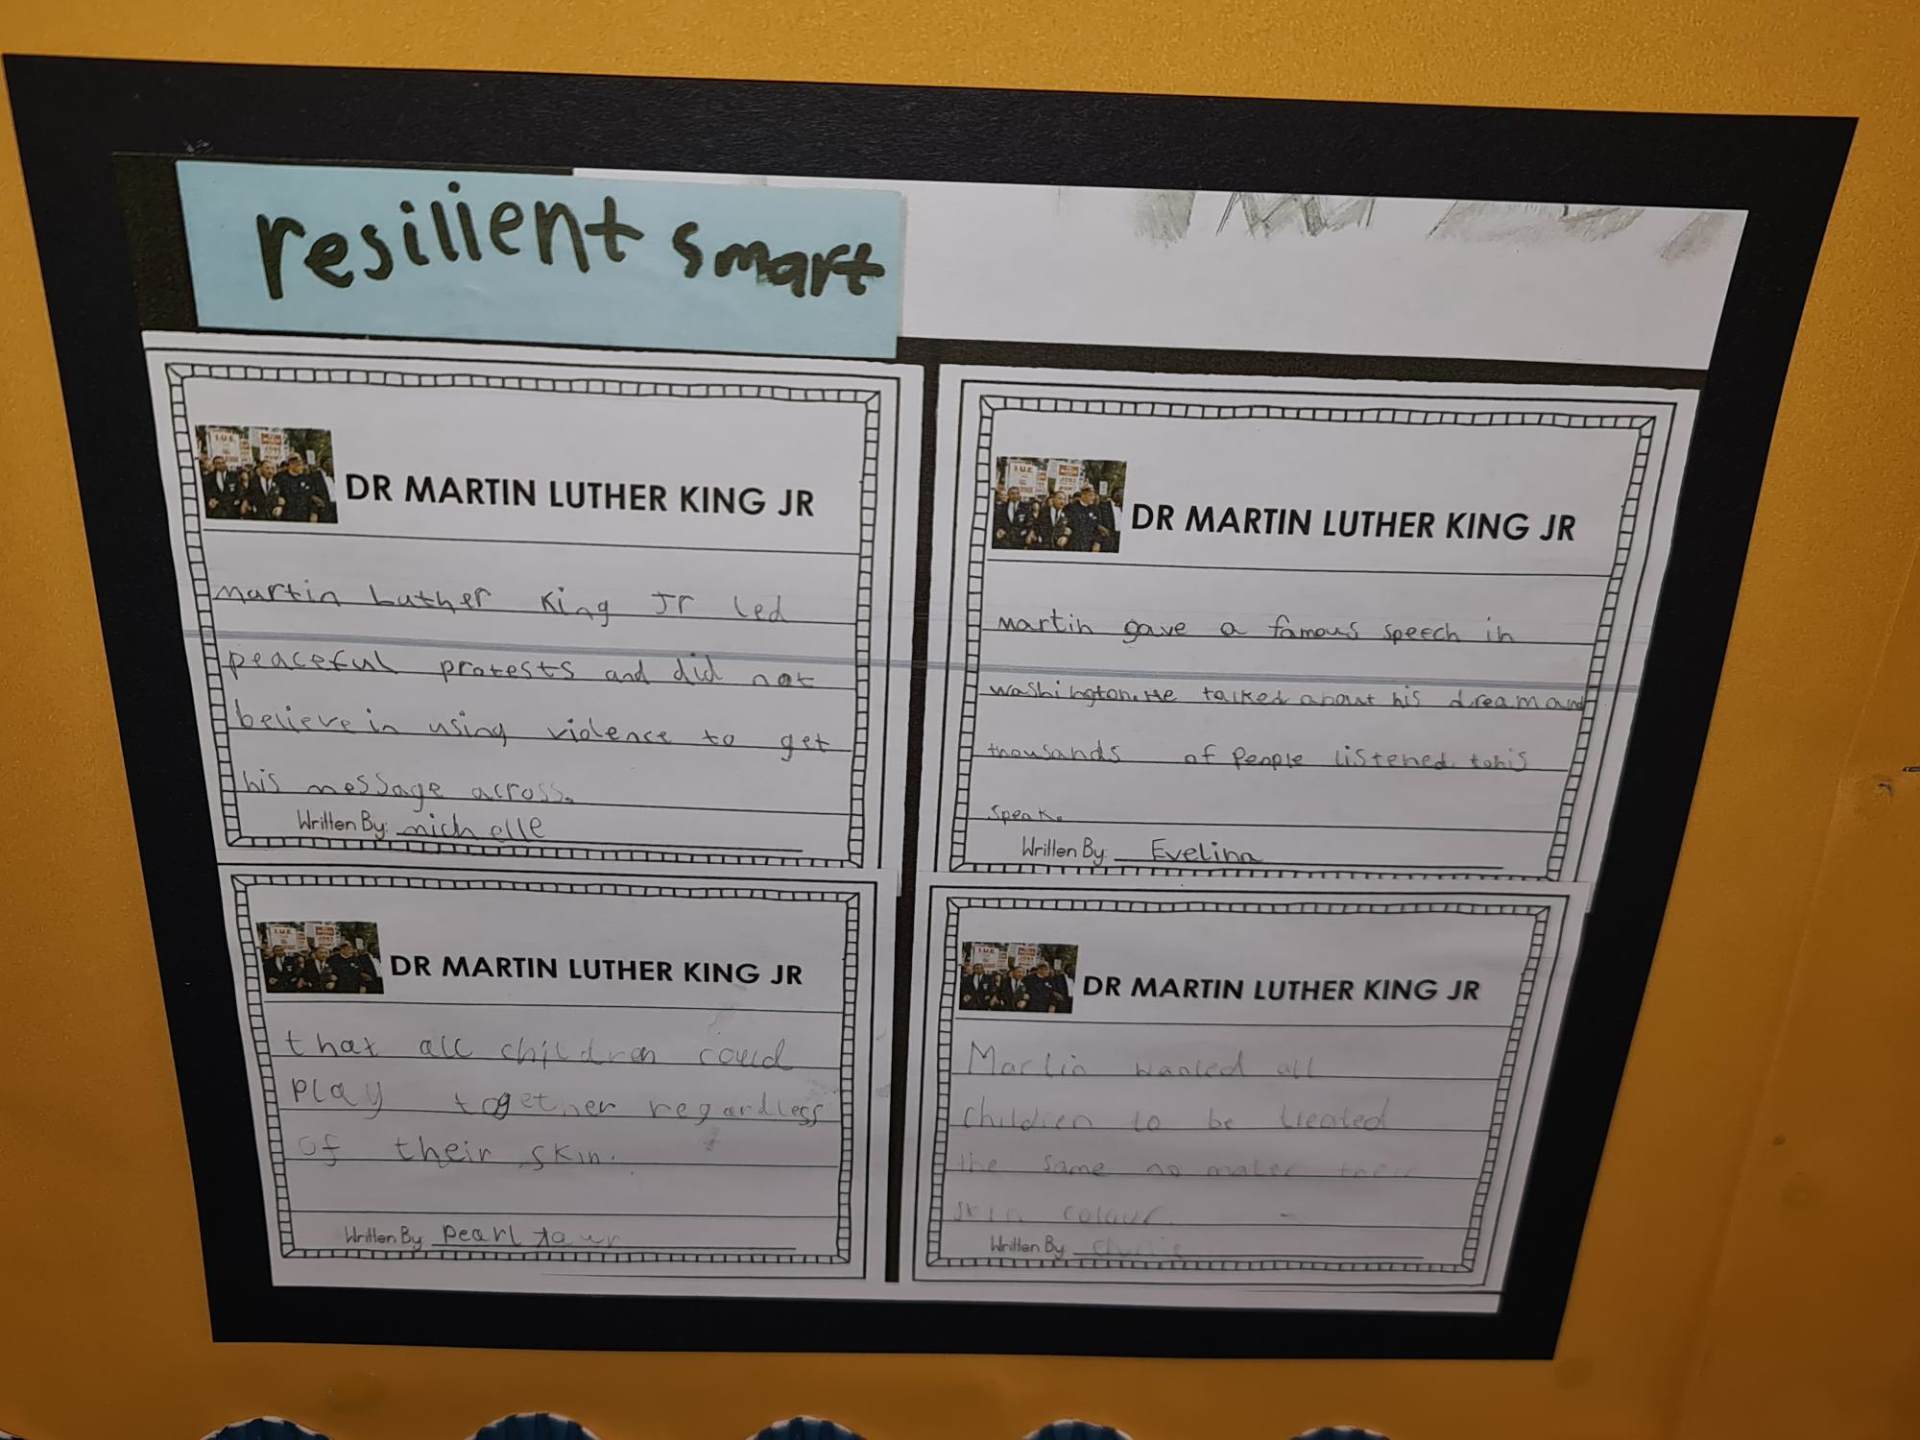 resilient smart
DR MARTIN LUTHER KING JR
martin Luther King Jr led
peaceful protests and did not
believe in using violence to get
his message across.
Written By: michelle
DR MARTIN LUTHER KING JR
martin gave a famous speech in
washington. He talked about his dream and
thousands of People listened to his
speak.
Written By: Evelina
DR MARTIN LUTHER KING JR
that all children could
play together regardless
of their skin.
Written By: pearl
DR MARTIN LUTHER KING JR
Martin wanted all
children to be treated
the same no mater their
skin colour.
Written By: